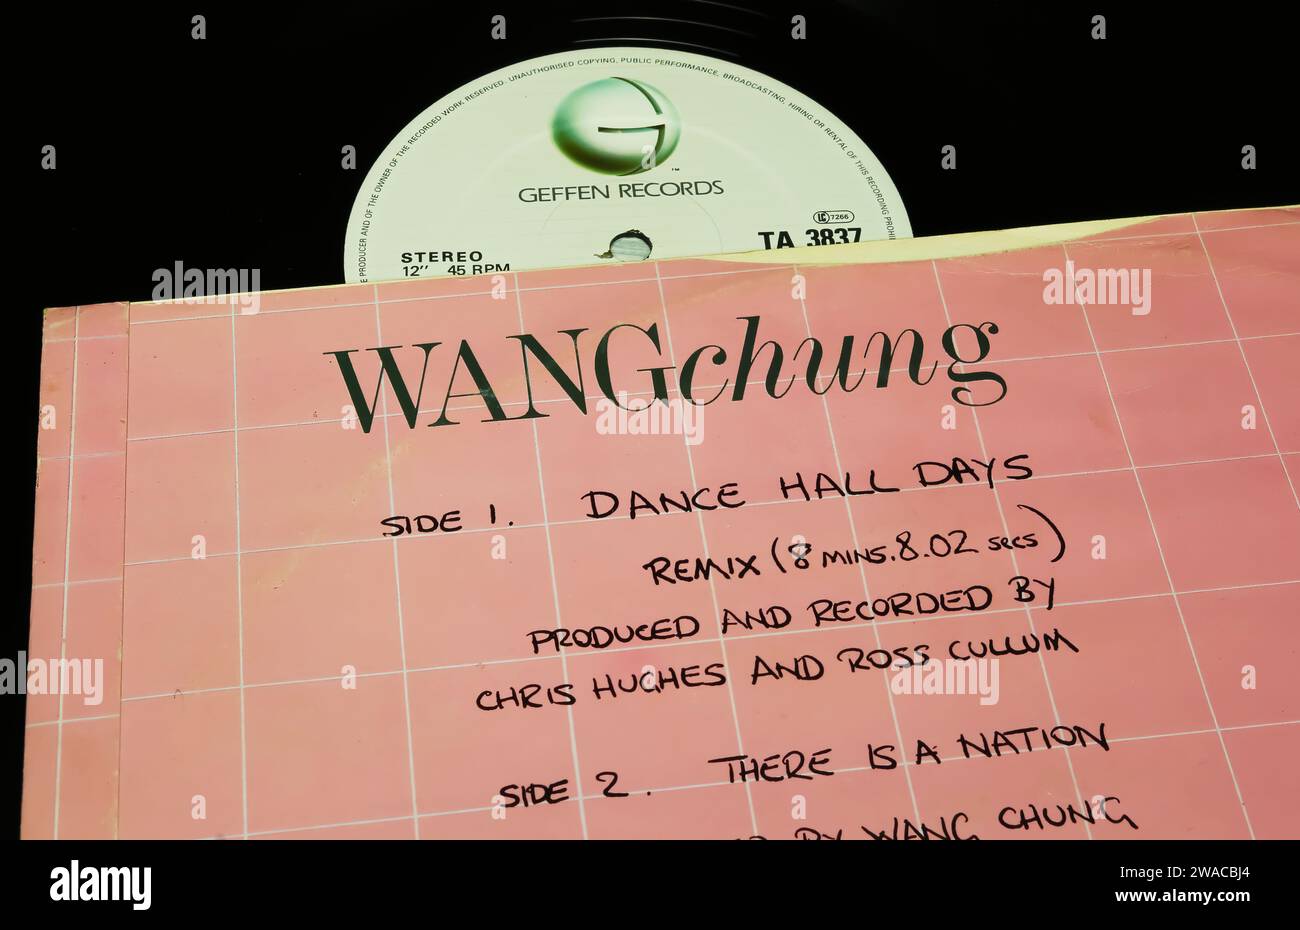 UNAUTHORISED COPYING, PUBLIC PERFORMANCE, BROADCASTING, HIRING OR RENTAL OF THIS RECORDING PROHI
PRODUCER AND OF THE OWNER OF THE RECORDED WORK RESERVED.
GEFFEN RECORDS™
LC 7266
TA 3837
STEREO
12" 45 RPM
WANGchung
SIDE 1. DANCE HALL DAYS
REMIX (8 MINS. 8.02 SECS)
PRODUCED AND RECORDED BY
CHRIS HUGHES AND ROSS CULLUM
SIDE 2. THERE IS A NATION
BY WANG CHUNG
alamy
alamy
Image ID: 2WACBJ4
www.alamy.com